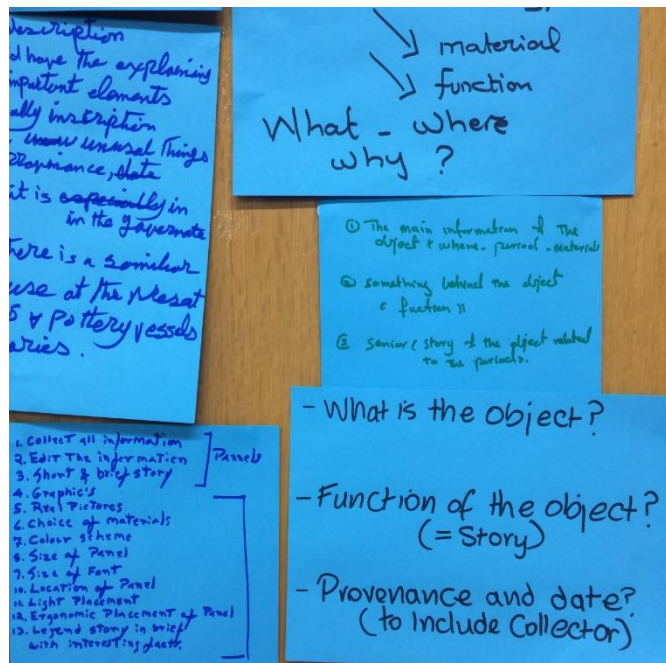 description
d have the explaining
important elements
ally inscription
unusual Things
provenance, date
it is especially in
in the governate
There is a similar
use at the present
pottery vessels
aries.
material
function
What - where
why ?
① The main information of The
object + where - period - materials
② something behind the object
( function ))
③ senior ( story of the object related
to the period ).
1. Collect all information
2. Edit The information
3. Short & brief story
Panels
4. Graphic's
5. Real Pictures
6. Choice of materials
7. Colour scheme
8. Size of Panel
9. Size of Font
10. Location of Panel
11. Light Placement
12. Ergonomic Placement of Panel
13. Legend story in brief
with interesting facts.
- What is the object?
- Function of the object?
(= Story)
- Provenance and date?
(to Include Collector)